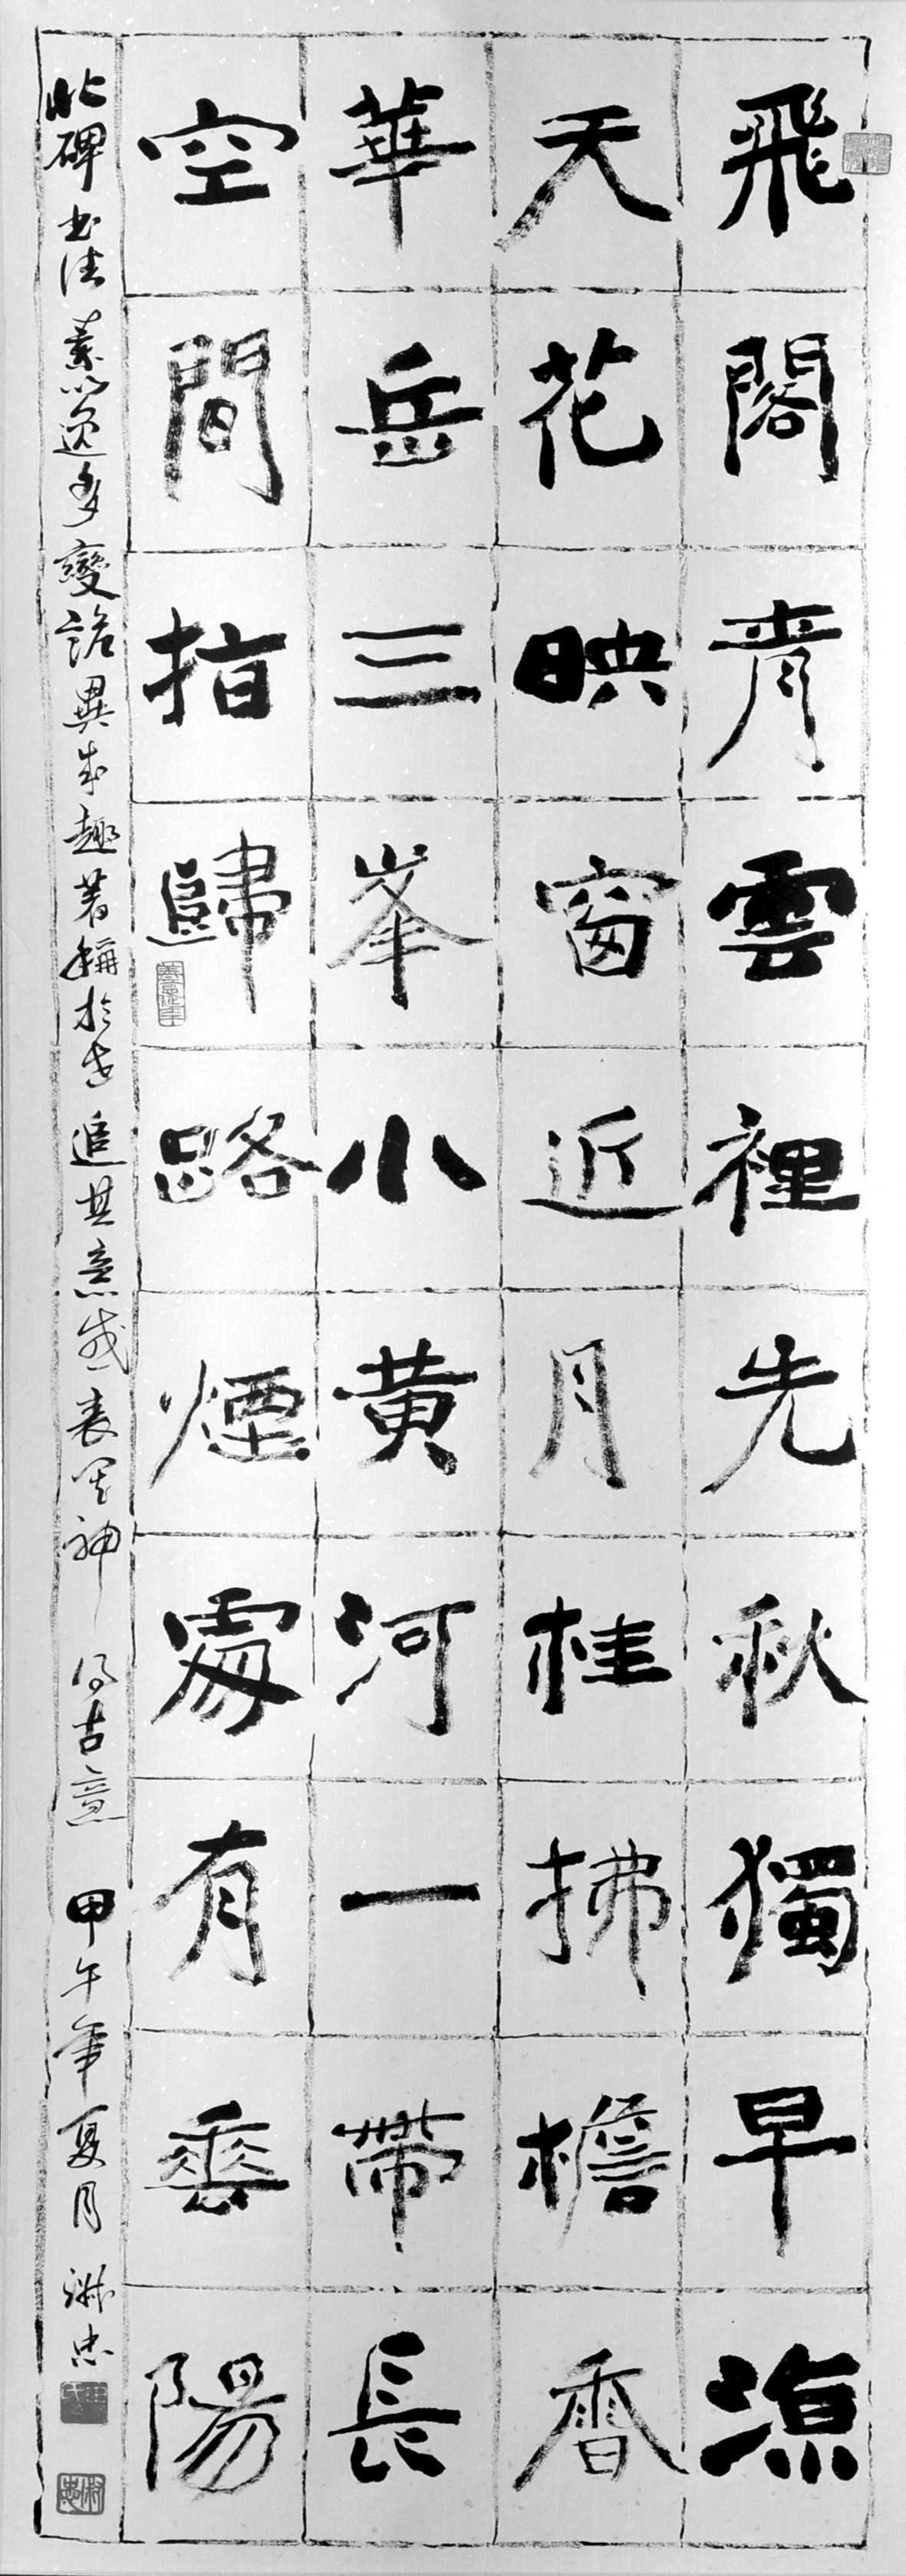 飛閣青雲裡先秋獨早涼
天花映窗近月桂拂檐香
華岳三峯小黃河一帶長
空間指歸路煙處有垂陽
北碑書法素以逸多變詭異生趣著稱於世追其意或表其神 得古意 甲午年夏月 淑忠